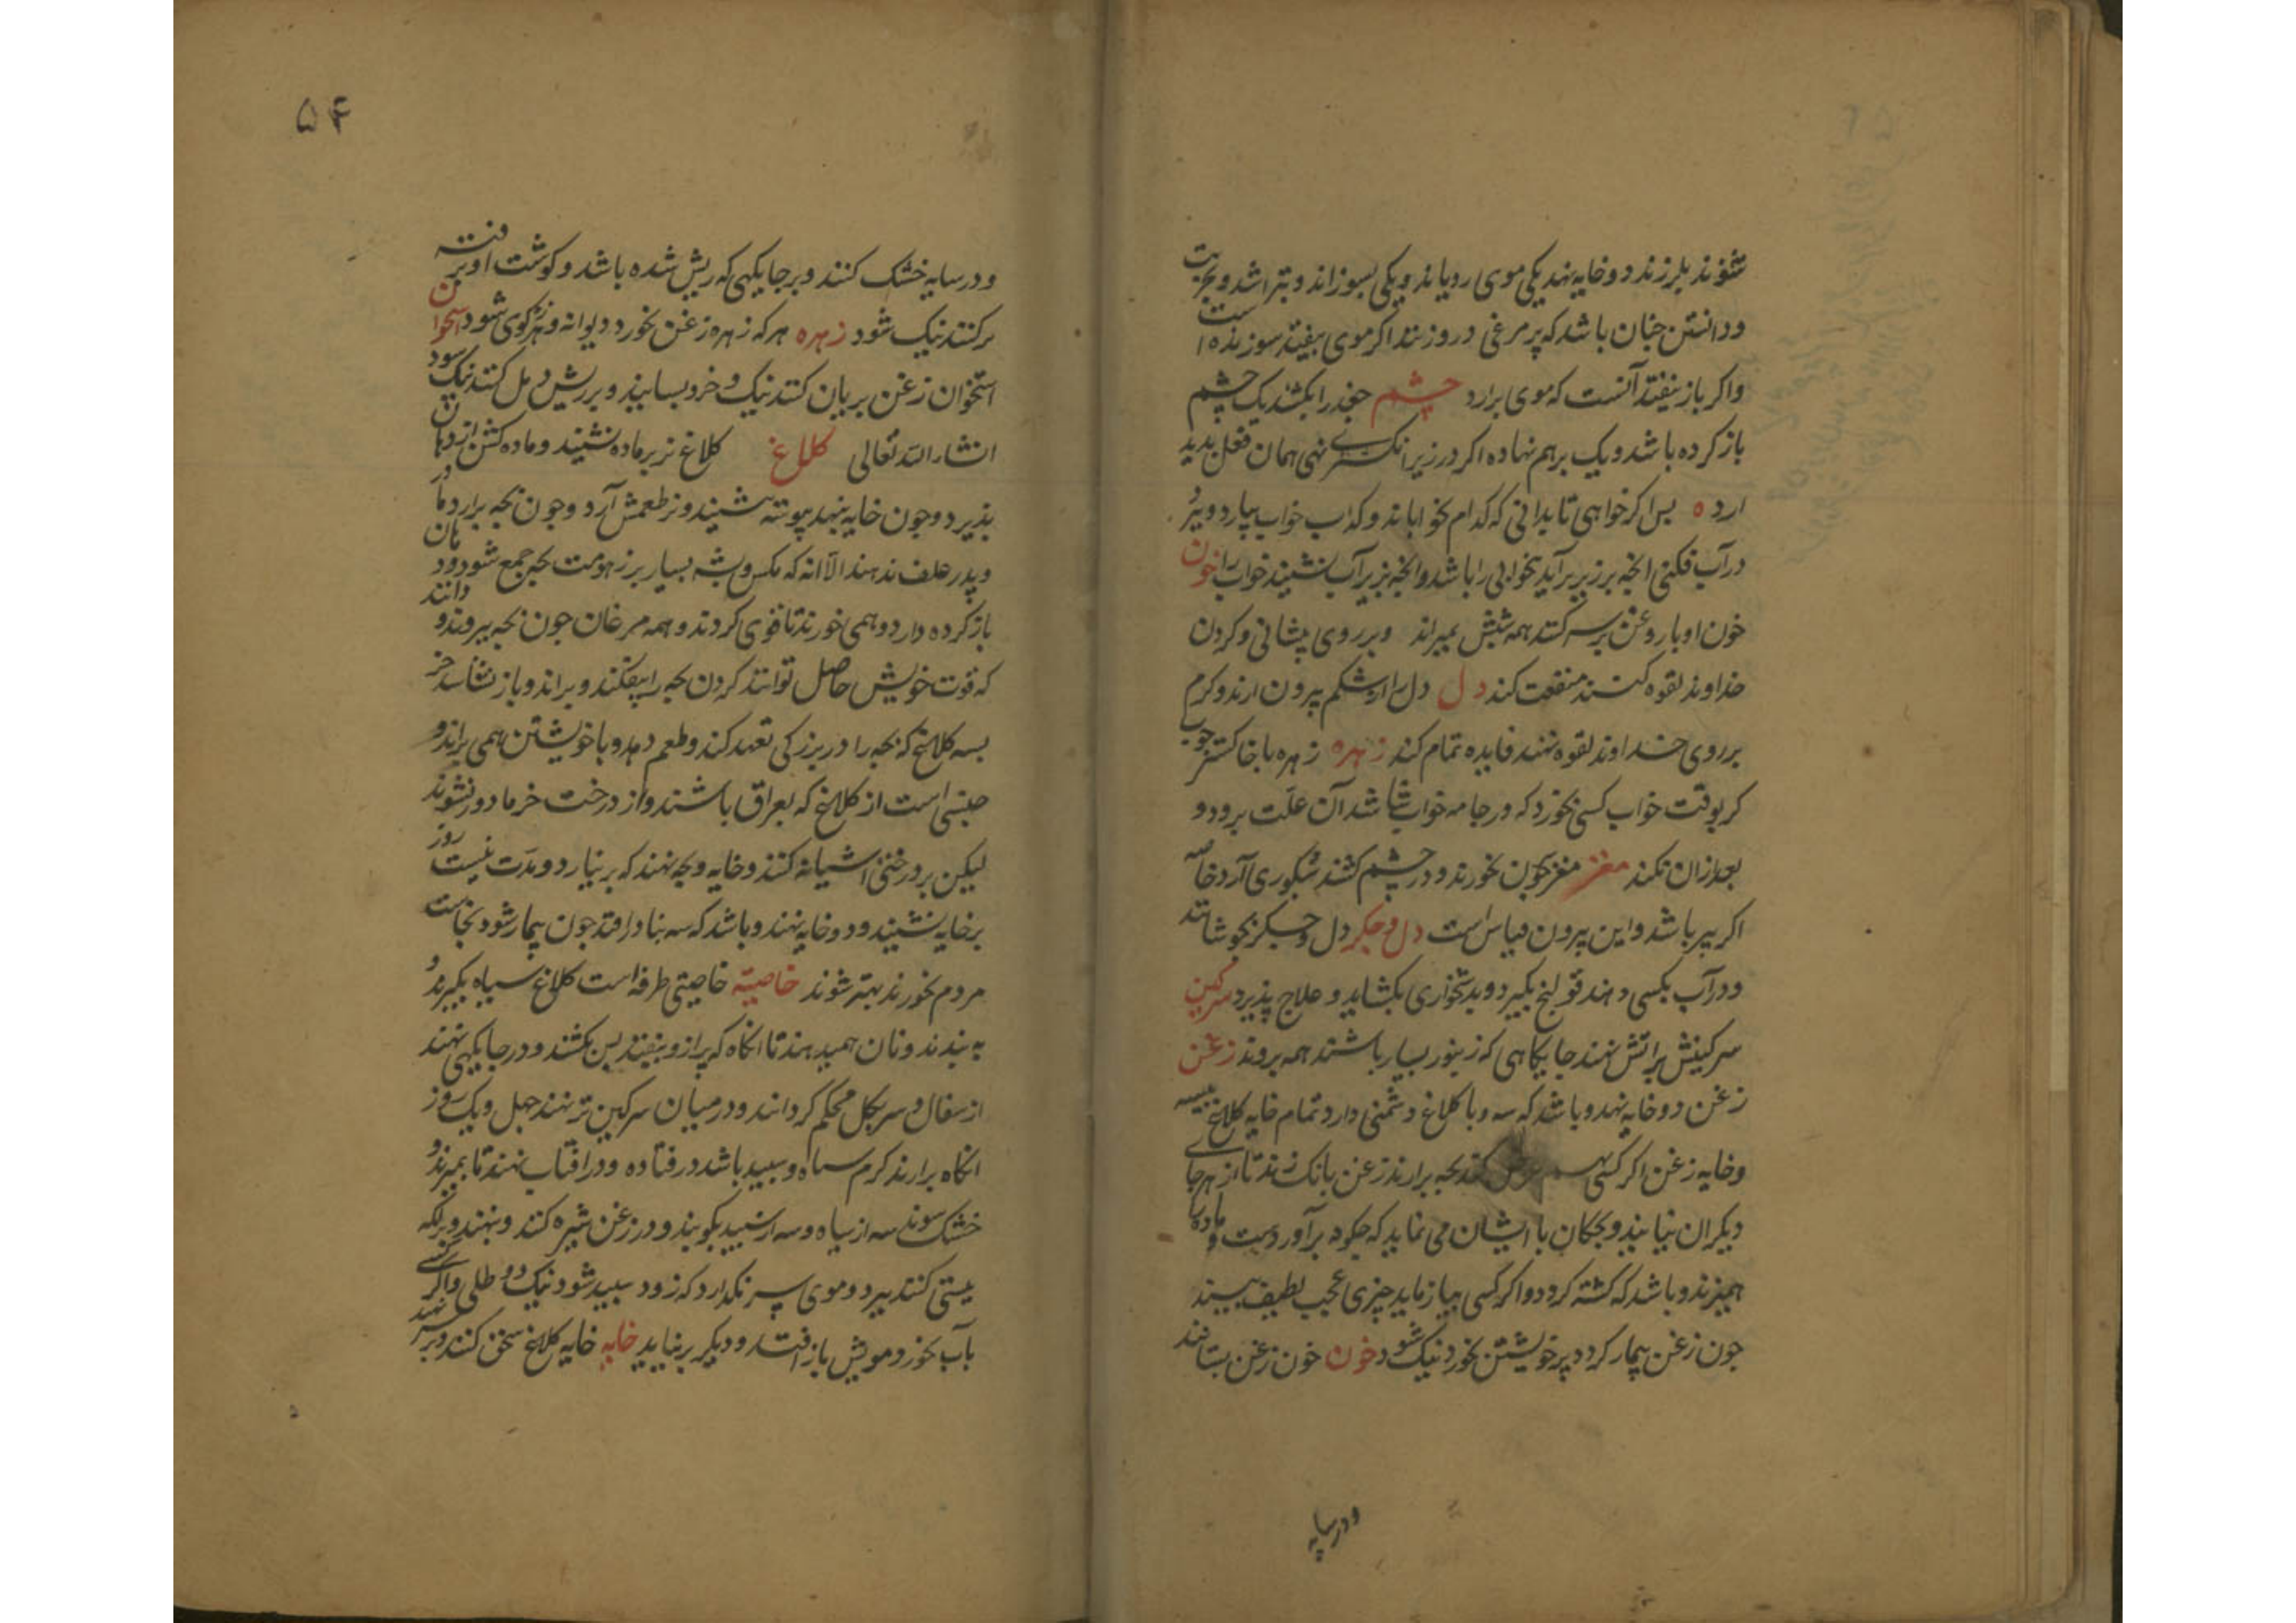 شوند بلرزند دو خایه نهد یکی موی رویاند و یکی بسوزاند و بتراشد و تجربت
و دانستن چنان باشد که پر مرغی در وزنند اگر موی بیفتد سوزنده است
و اگر باز نیفتد آنست که موی برارد چشم جغد را بکشند یک چشم
باز کرده باشد و یک برهم نهاده اگر در زیر انگشتری نهی همان فعل پدید
ارد ه بس اگر خواهی تا بدانی که کدام بخواباند و کدام خواب بیارد و ببرد
در آب فکنی انچه بر زبر آید بیخوابی را باشد و انچه بزیر آب نشیند خواب را خون
خون او با روغن بر سر کنند همه شپش بمیراند و بر روی پیشانی و کردن
خداوند لقوه کنند منفعت کند دل دل را از شکم بیرون ارند و کرم
بر روی خداوند لقوه نهند فایده تمام کند زهره زهره با خاکستر چوب
کز بوقت خواب کسی بخورد که در جامه خواب شاشد آن علت برود و
بعد ازان نکند مغز مغز چون بخورند و در چشم کشند شبکوری آرد خاصه
اگر پیر باشد و این بیرون قیاس است دل و جکر دل و جکر بجوشانند
و در آب بکسی دهند قولنج بکیرد و بدشخواری بکشاید و علاج پذیرد سرکین
سرکینش بر اتش نهند جایکاهی که زنبور بسیار باشند همه بروند زغن
زغن دو خایه نهد و باشد که سه و با کلاغ دشمنی دارد تمام خایه کلاغ
و خایه زغن اگر کسی کند بچه برارند زغن بانک زند تا از هر جای
دیکران بیایند و بچکان با ایشان می نماید که چکونه برآورد و ماده را
همیزند و باشد که کشته کردد و اگر کسی بیازماید چیزی عجیب لطیف بیند
چون زغن بیمار کردد پر خویشتن بخورد نیک شود خون خون زغن بستانند
و در سایه
۵۴
و در سایه خشک کنند و بر جایکهی که ریش شده باشد و کوشت او برفته
برکنند نیک شود زهره هر که زهره زغن بخورد دیوانه و هرزه کوی شود استخوان
استخوان زغن بریان کنند نیک و خرد بسایند و بر ریش و مل کنند نیک شود
انشاء الله تعالی کلاغ کلاغ نر بر ماده نشیند و ماده کشن از دهان
پذیرد و چون خایه بنهد پیوسته نشیند و نر طعمش آرد و چون بچه برارد مادر
و پدر علف ندهند الا انه که مکس و پشه بسیار بر زهومت بچه جمع شود و دهان
باز کرده دارد و همی خورند تا قوی کردند و همه مرغان چون بچه بپرورند و دانند
که قوت خویش حاصل توانند کردن بچه را بیفکنند و براند و باز نشناسد جز
بسه کلاغ که بچه را در بزرکی تعهد کند و طعم دهد و با خویشتن همی براند و
جنسی است از کلاغ که بعراق باشند و از درخت خرما دور نشوند
لیکن بر درختی اشیانه کنند و خایه و بچه نهند که بر نیارد و مدت بیست روز
بر خایه نشیند و دو خایه نهند و باشد که سه بنادر افتد چون بیمار شود نجاست
مردم بخورند بهتر شوند خاصیة خاصیتی طرفه است کلاغ سیاه بکیرند و
ببندند و نان همیدهند تا انکاه که پر ازو بیفتد پس بکشند و در جایکهی نهند
از سفال و سر بکل محکم کردانند و در میان سرکین تر نهند چهل و یک روز
انکاه برارند کرم سیاه و سپید باشد در فتاده و در افتاب نهند تا بمیرند و
خشک شوند سه از سیاه و سه از سپید بکوبند و در زغن شیره کنند و بنهند و برانکه
پیستی کنند ببرد و موی سر نکدارد که زود سپید شود نیک دو طلی و اگر کسی
بآب بخورد مویش باز افتد و دیکر برنیاید خایه خایه کلاغ سحق کنند و بر سر نهند